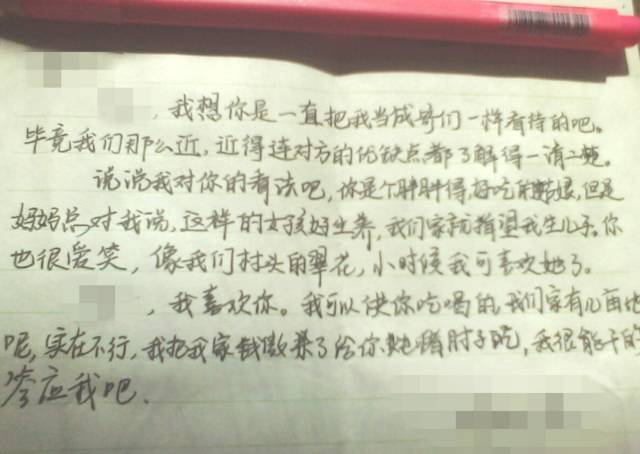 ，我想你是一直把我当成哥们一样看待的吧。
毕竟我们那么近，近得连对方的优缺点都了解得一清二楚。
说说我对你的看法吧，你是个胖胖得，好吃的姑娘，但是
妈妈总对我说，这样的女孩好生养，我们家就指望我生儿子。你
也很爱笑，像我们村头的翠花，小时候我可喜欢她了。
，我喜欢你。我可以供你吃喝的，我们家有几亩地
呢，实在不行，我把我家钱敛来了给你炖猪肘子吃，我很能干的
答应我吧．